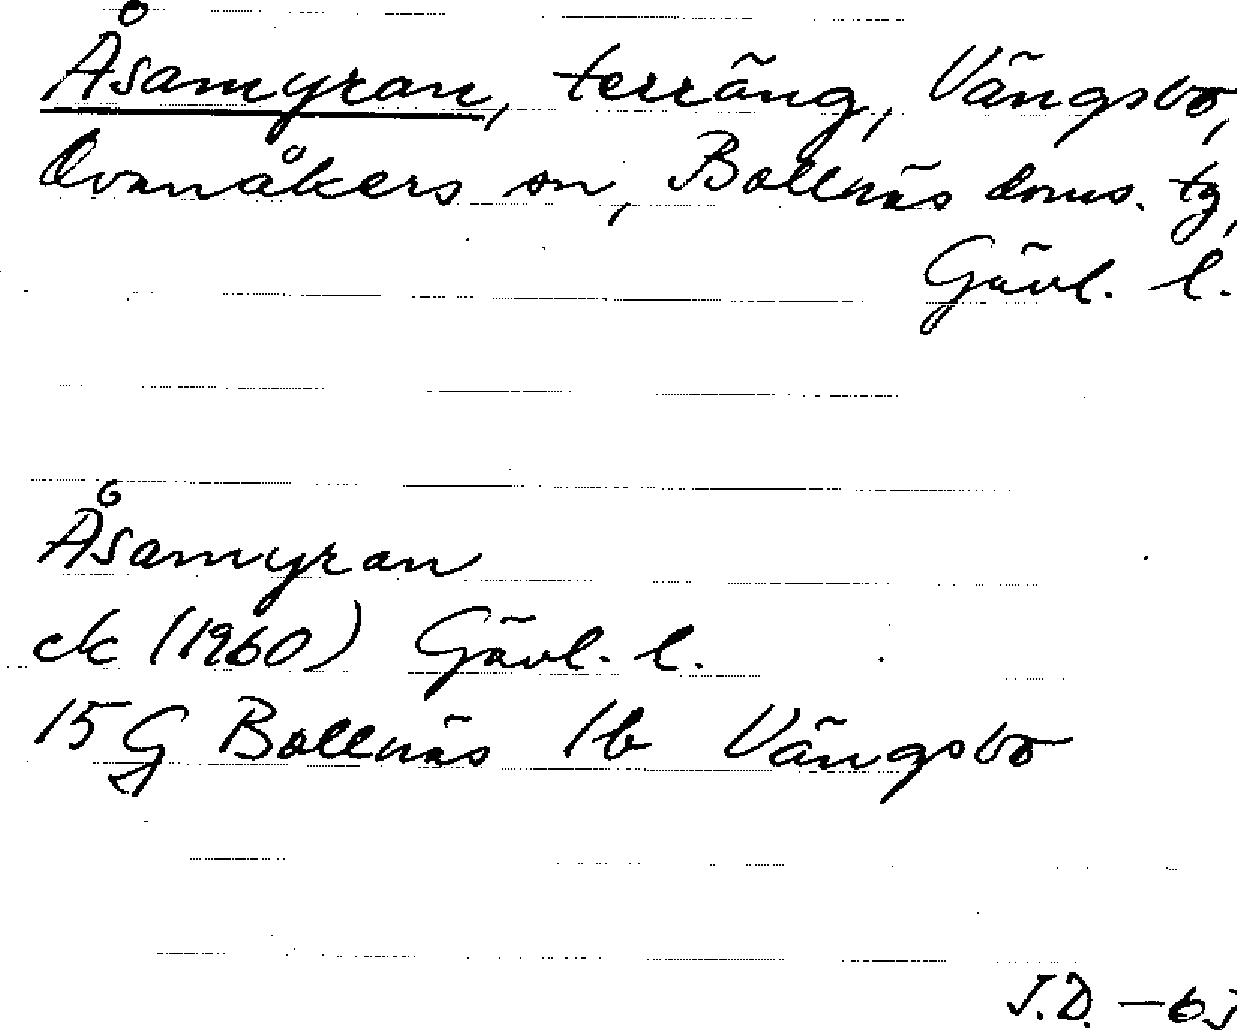 Åsamyran, terräng, Vängsbo,
Ovanåkers sn, Bollnäs doms. tg,
Gävl. l.
Åsamyran
ek (1960) Gävl. l.
15G Bollnäs 1b Vängsbo
J.D. -63